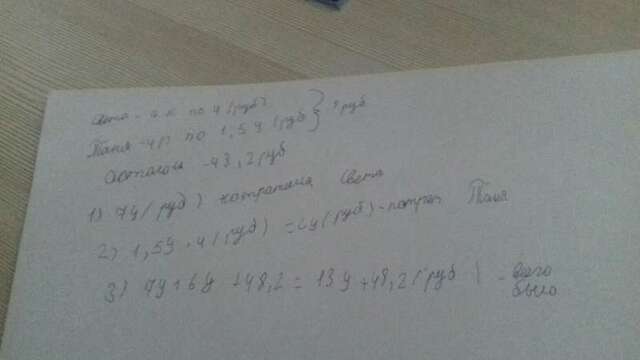 Света - 7 к по у (руб)
Таня - 4р по 1,5у (руб) } ? руб
Осталось - 48,2 руб
1) 7у (руб) потратила Света
2) 1,5у · 4 (руб) = 6у (руб) - потрат Таня
3) 7у + 6у + 48,2 = 13у + 48,2 (руб) - всего было